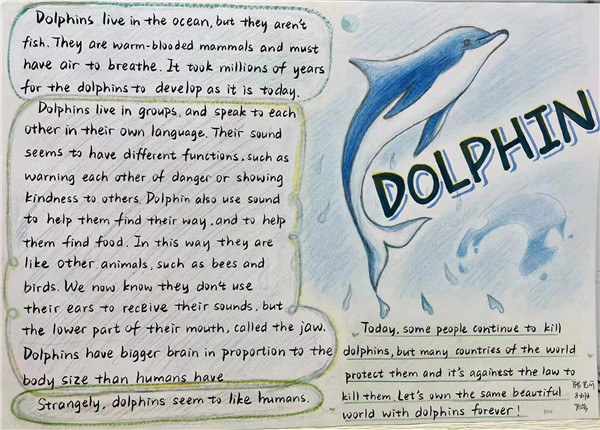 Dolphins live in the ocean, but they aren't
fish. They are warm-blooded mammals and must
have air to breathe. It took millions of years
for the dolphins to develop as it is today.
Dolphins live in groups, and speak to each
other in their own language. Their sound
seems to have different functions, such as
warning each other of danger or showing
kindness to others. Dolphin also use sound
to help them find their way, and to help
them find food. In this way they are
like other animals, such as bees and
birds. We now know they don't use
their ears to receive their sounds, but
the lower part of their mouth, called the jaw.
Dolphins have bigger brain in proportion to the
body size than humans have.
Strangely, dolphins seem to like humans.
DOLPHIN
Today, some people continue to kill
dolphins, but many countries of the world
protect them and it's againest the law to
kill them. Let's own the same beautiful
world with dolphins forever!